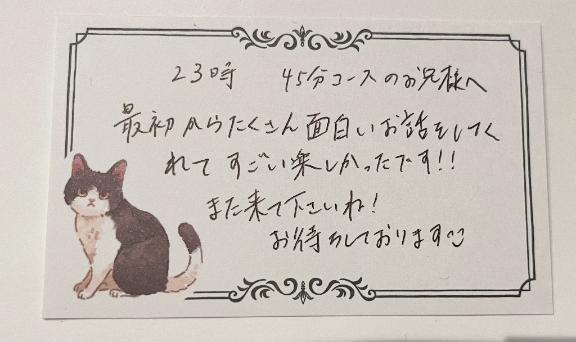 23時 45分コースのお兄様へ
最初からたくさん面白いお話をしてく
れて すごい楽しかったです!!
また来て下さいね!
お待ちしております